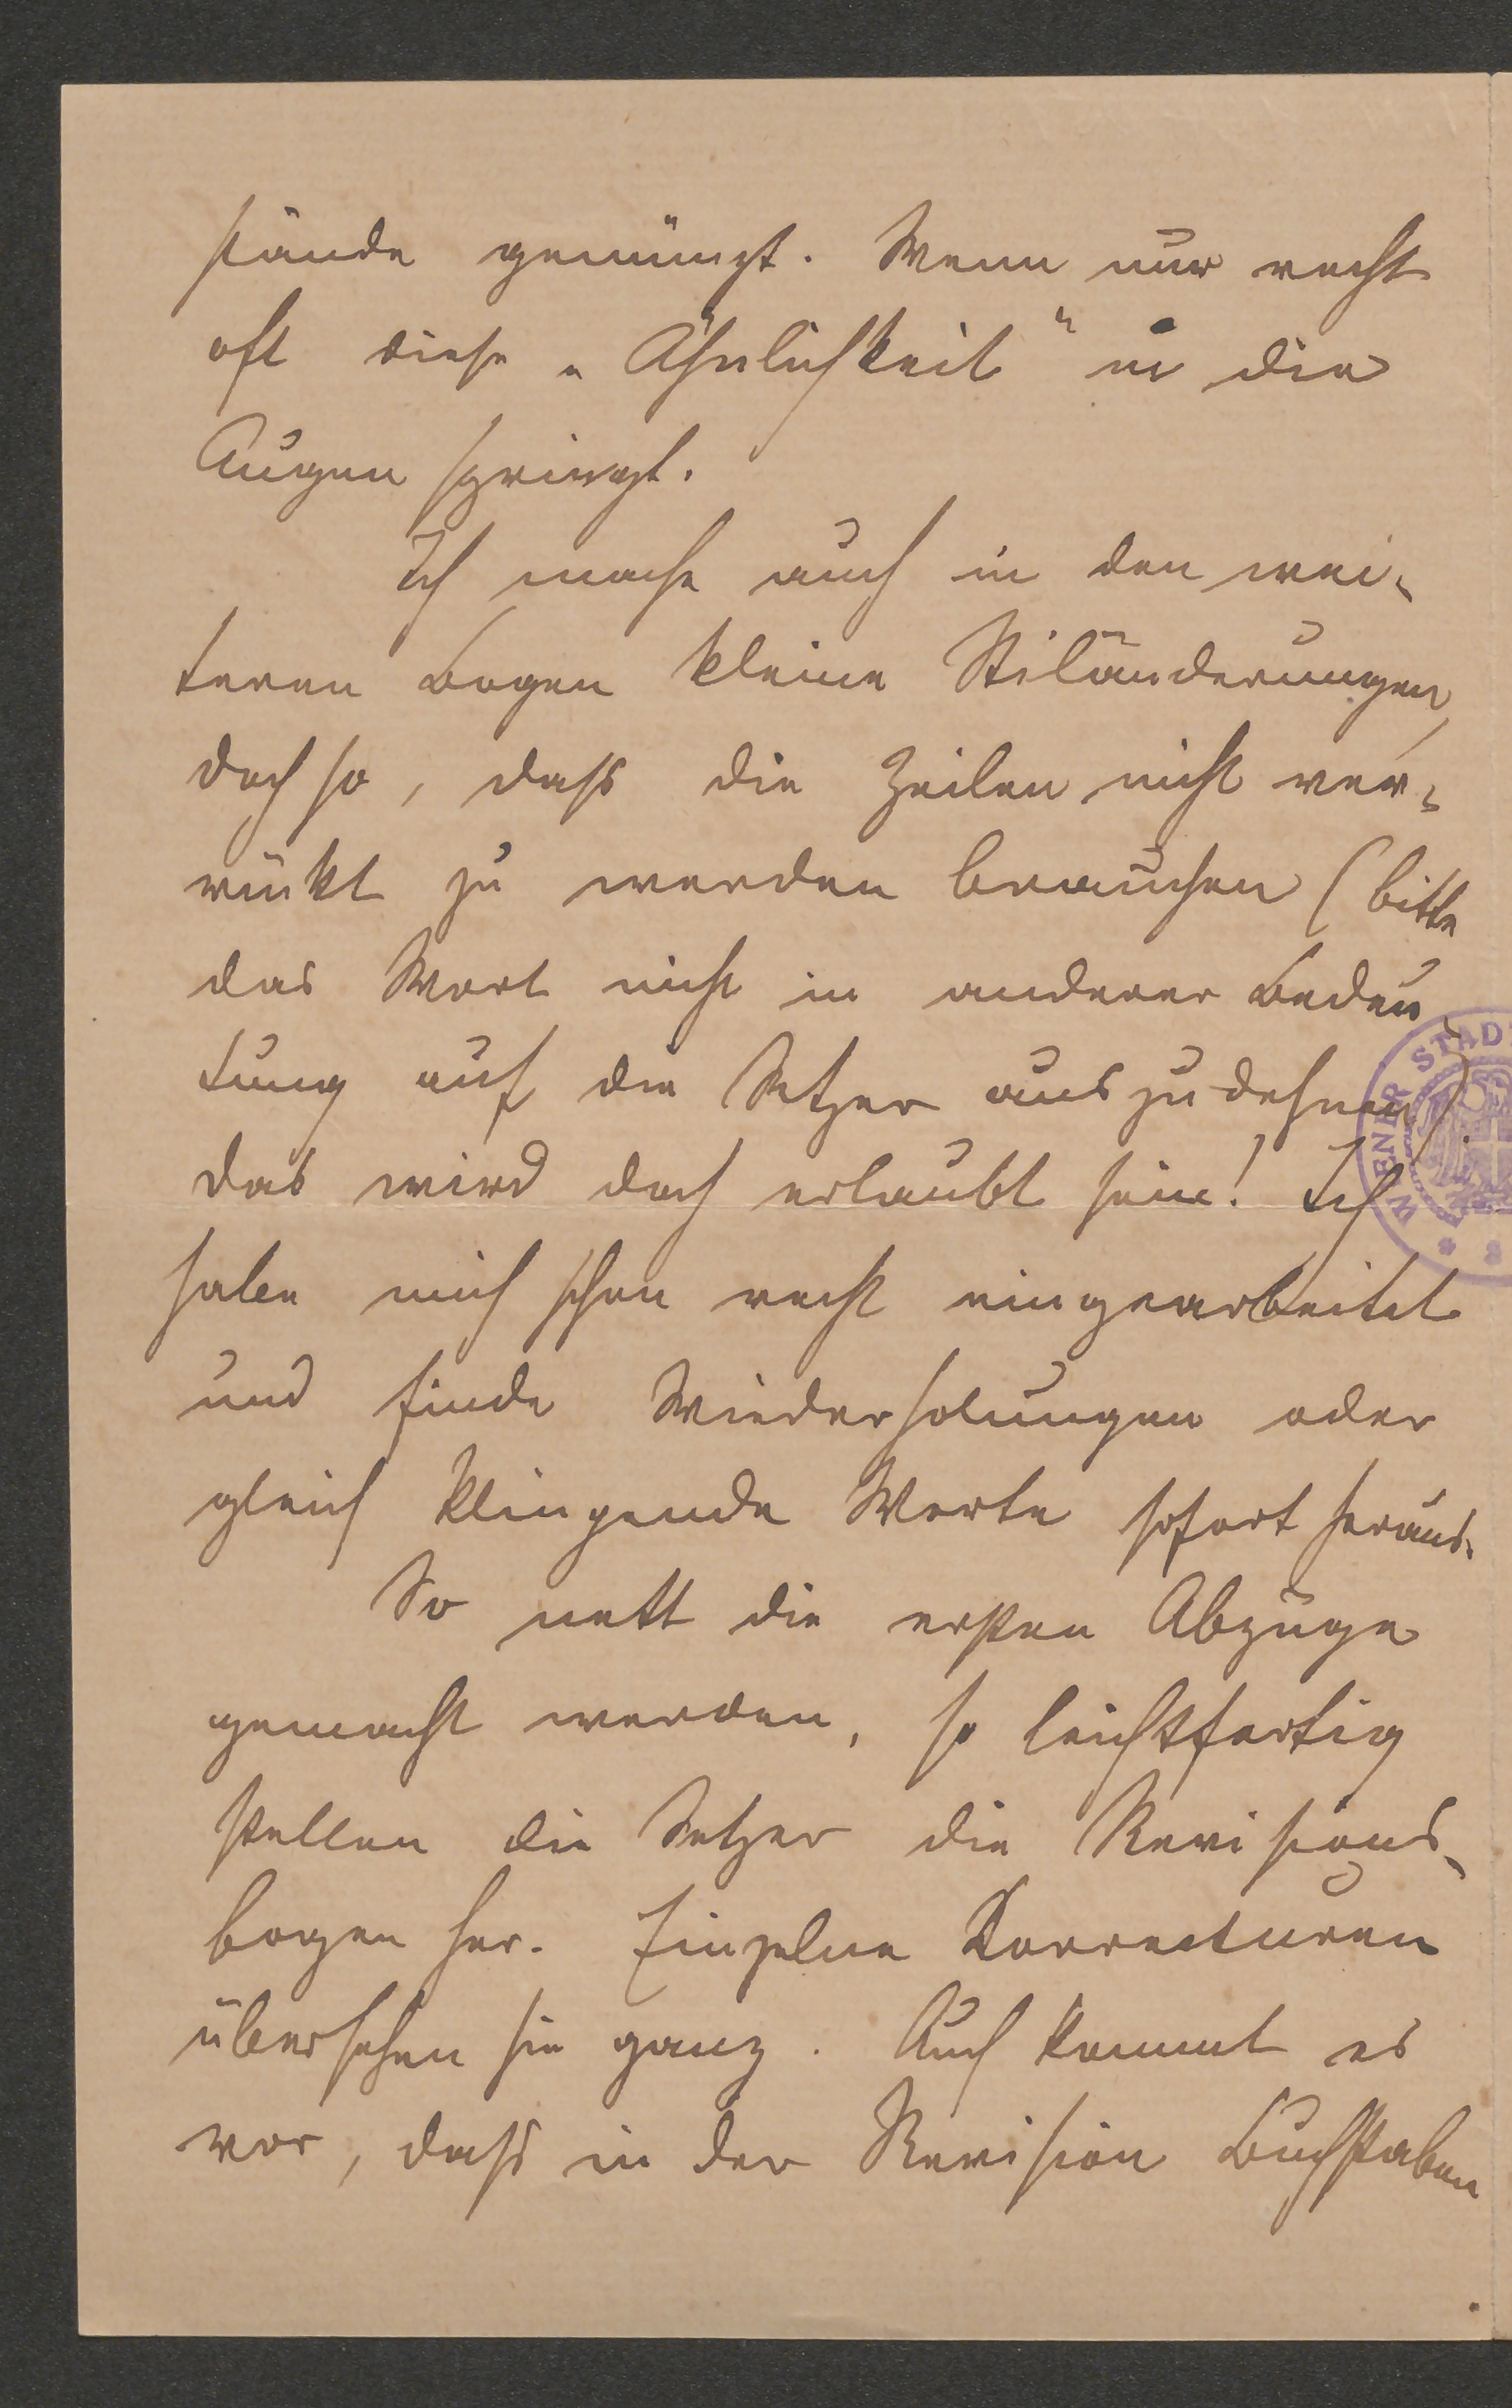 stände gemünzt. Wenn nur recht
oft diese „Ähnlichkeit“ in die
Augen springt.
Ich mache auch in den wei-
teren Bogen kleine Stiländerungen,
doch so, dass die Zeilen nicht ver-
rückt zu werden brauchen (bitte
das Wort nicht in anderer Bedeu-
tung auf die Setzer auszudehnen).
das wird doch erlaubt sein! Ich
habe mich schon recht eingearbeitet
und finde Wiederholungen oder
gleich klingende Worte sofort heraus.
So nett die ersten Abzüge
gemacht werden, so leichtfertig
stellen die Setzer die Revisions-
bogen her. Einzelne Correcturen
übersehen sie ganz. Auch kommt es
vor, dass in der Revision Buchstaben
WIENER STAD